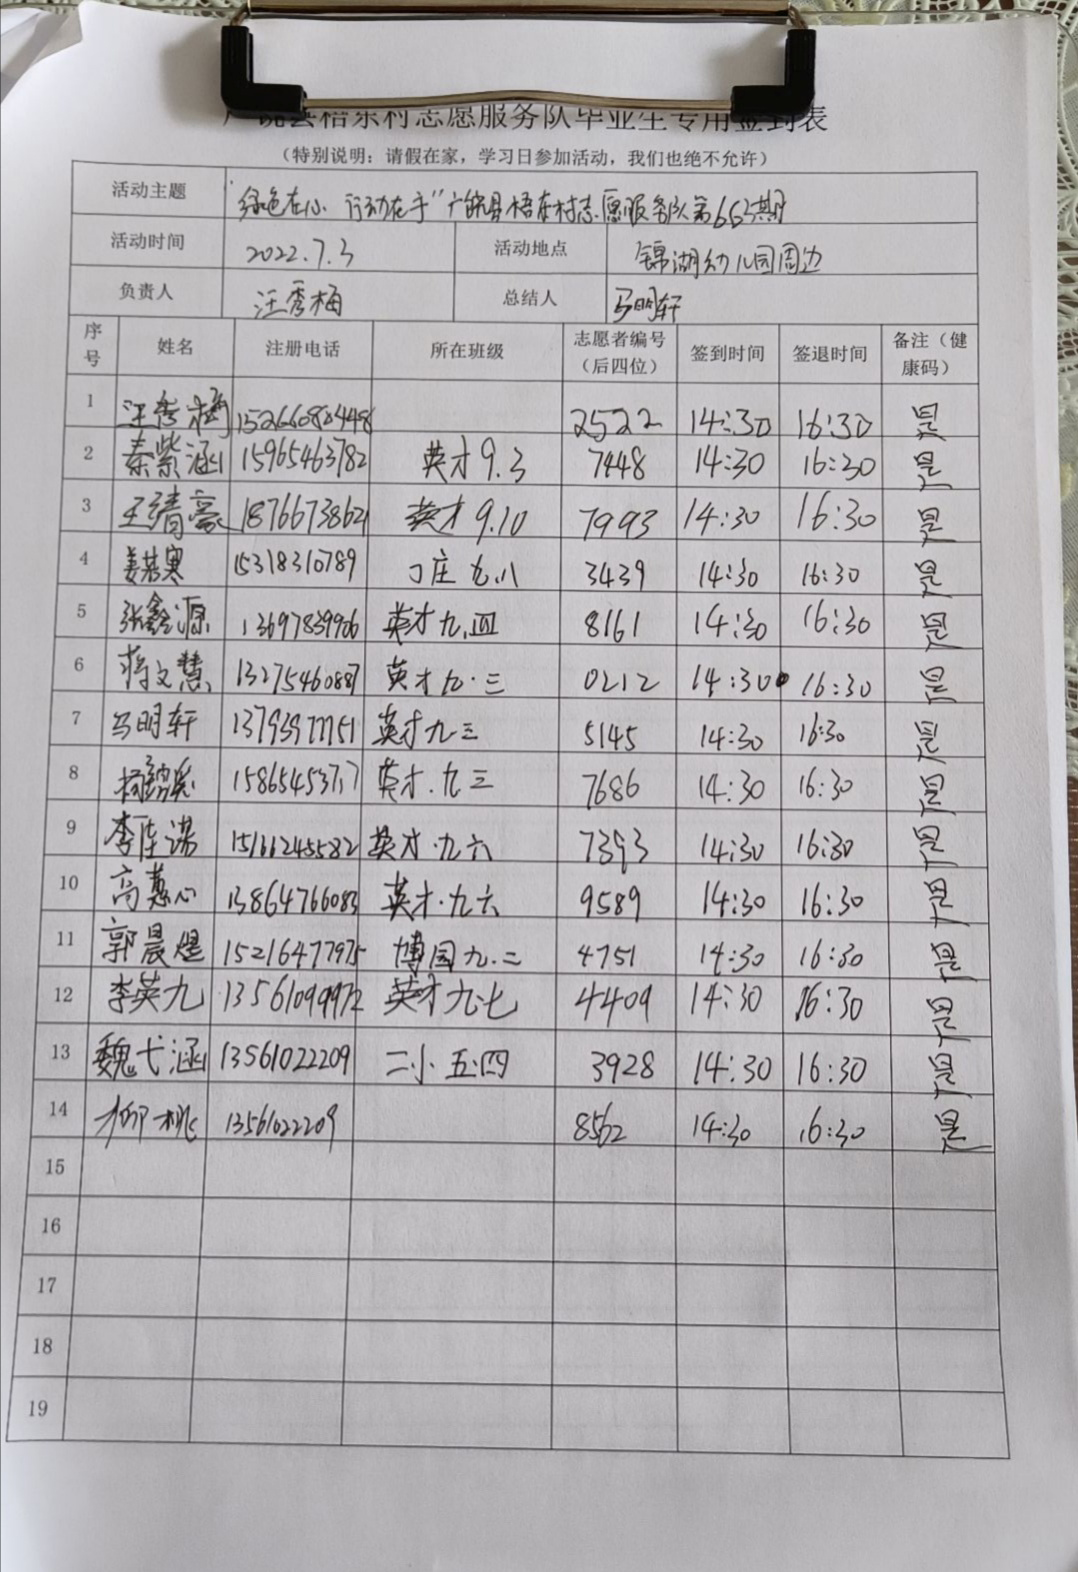 广饶县梧东村志愿服务队毕业生专用签到表
（特别说明：请假在家，学习日参加活动，我们也绝不允许）
活动主题 “绿色在心 行动在手”广饶县梧东村志愿服务队第663期
活动时间 2022.7.3 活动地点 锦湖幼儿园周边
负责人 汪秀梅 总结人 马明轩
序号 姓名 注册电话 所在班级 志愿者编号（后四位） 签到时间 签退时间 备注（健康码）
1 汪秀梅 2522 14:30 16:30 是
2 秦紫涵 15965463782 英才9.3 7448 14:30 16:30 是
3 王靖豪 18766738621 英才9.10 7993 14:30 16:30 是
4 姜若寒 15318310789 丁庄九.八 3439 14:30 16:30 是
5 张鑫源 13697839906 英才九.四 8161 14:30 16:30 是
6 蒋文慧 13275460887 英才九.三 0212 14:30 16:30 是
7 马明轩 13793977151 英才九三 5145 14:30 16:30 是
8 英才.九三 7686 14:30 16:30 是
9 李佳诺 英才.九六 7393 14:30 16:30 是
10 高蕙心 13864766083 英才.九六 9589 14:30 16:30 是
11 郭晨煜 15216477975 博园九.二 4751 14:30 16:30 是
12 李英九 13561099972 英才九.七 4409 14:30 16:30 是
13 魏弋涵 13561022209 二小五.四 3928 14:30 16:30 是
14 柳桃 13561022209 8562 14:30 16:30 是
15
16
17
18
19